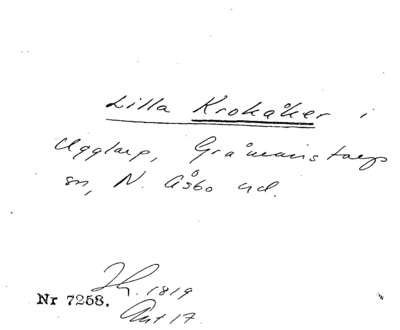 Lilla Krokåker i
Ugglarp, Gråmanstorps
sn, N. Åsbo hd.
1819
Nr 7258. Akt 17